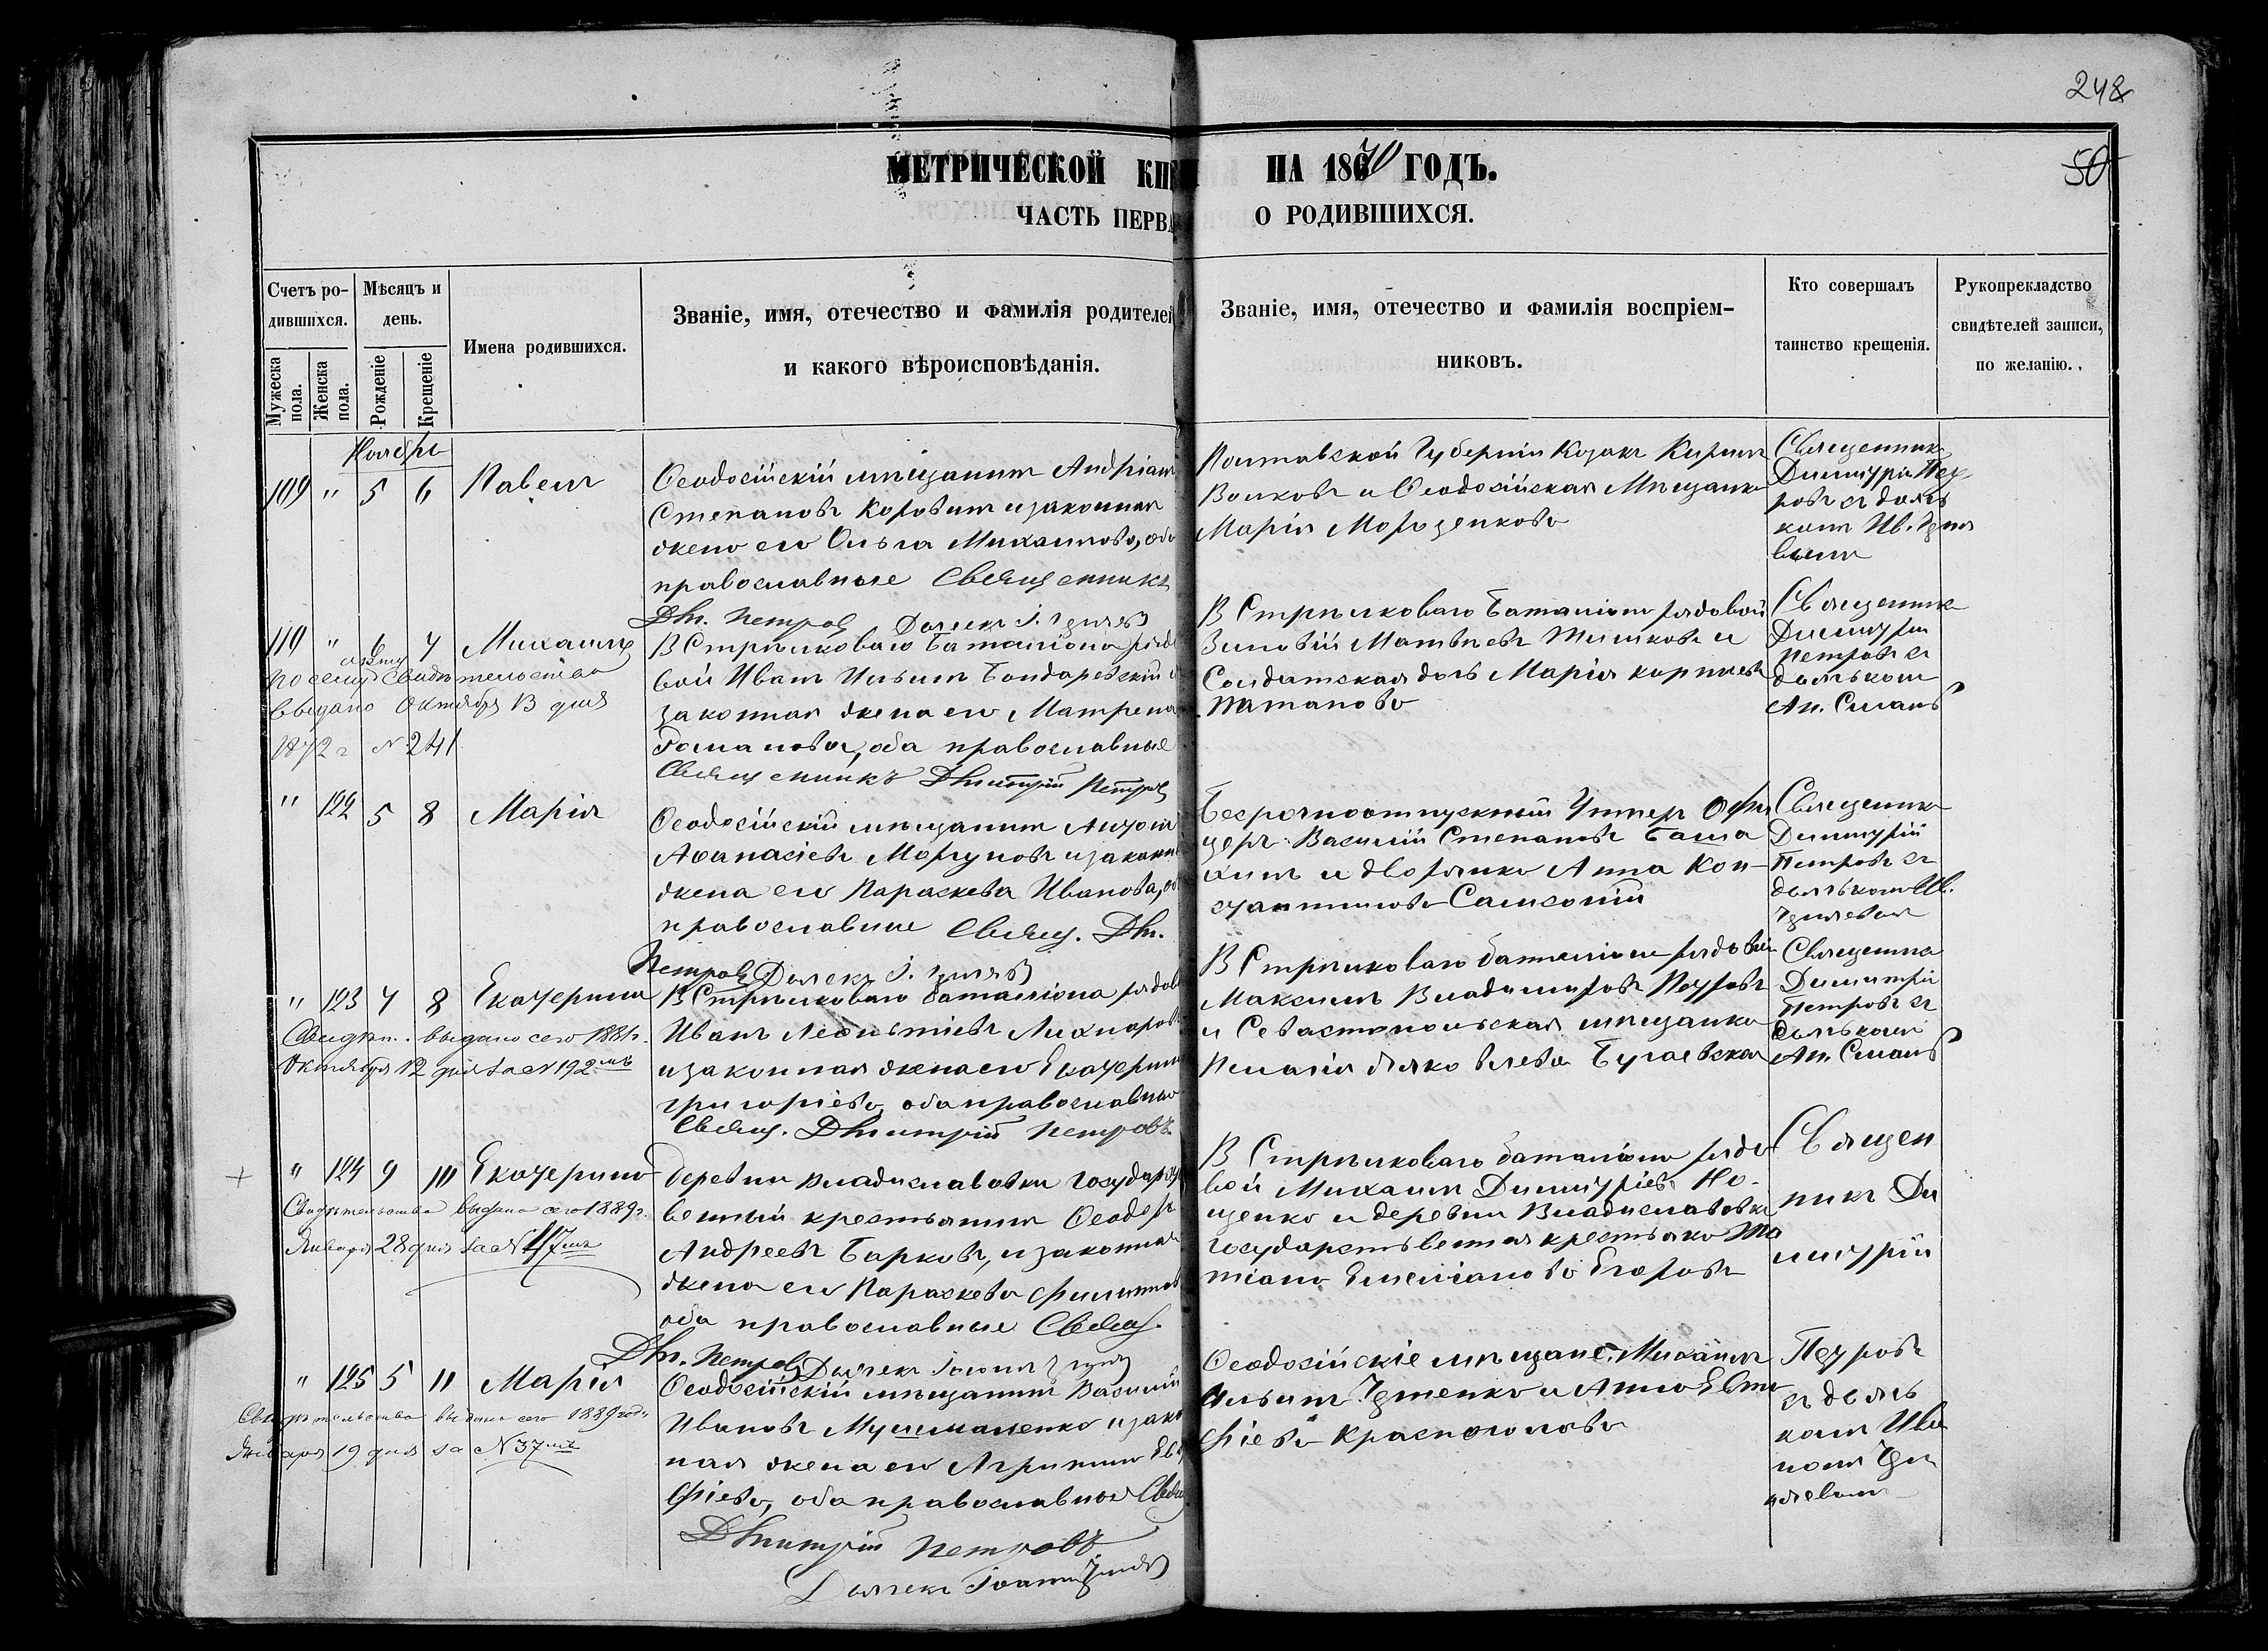 248
50
МЕТРИЧЕСКОЙ КНИ НА 1870 ГОДЪ.
ЧАСТЬ ПЕРВА О РОДИВШИХСЯ.
Счетъ ро-
дившихся.
Мужеска пола.
Женска пола.
Мѣсяцъ и
день.
Рожденіе
Крещеніе
Имена родившихся.
Званіе, имя, отечество и фамилія родителей
и какого вѣроисповѣданія.
Званіе, имя, отечество и фамилія воспріем-
никовъ.
Кто совершалъ
таинство крещенія.
Рукоприкладство
свидѣтелей записи,
по желанію.
Ноябрь
109 " 5 6 Павелъ
Ѳеодосійскій мѣщанинъ Андріанъ
Степановъ Коровинъ и законная
жена его Ольга Михаилова, оба
православные Священникъ
Дм. Петровъ Дьячекъ І.
Полтавской Губерніи Козакъ Кирилъ
Волковъ и Ѳеодосійская Мѣщанка
Марія Морозенкова
Священникъ
Димитрій Пет
ровъ съ дьяч
комъ Ив.
110 " 6 7 Михаилъ
По сему свидѣтельство
выдано Октября 13 дня
1872 г № 241
В Стрѣлковаго Баталіона рядо
вой Иванъ Ильинъ Бондаревскій и
законная жена его Матрена
Романова, оба православные
Священникъ Дмитрій Петровъ
В Стрѣлковаго Баталіона рядовой
Зиновій Матвѣевъ Тишковъ и
Солдатская дочь Марія Корнѣева
Потапова
Священникъ
Димитрій
Петровъ съ
дьячкомъ
Ан.
" 122 5 8 Марія
Ѳеодосійскій мѣщанинъ Антонъ
Аѳанасіевъ Моргуновъ и законная
жена его Параскева Иванова, об
православные Свящ. Дм.
Петровъ Дьячекъ І.
Безсрочноотпускный Унтер Офи
церъ Василій Степановъ
и дворянка Анна Кон-
стантинова
Священникъ
Димитрій
Петровъ съ
дьячкомъ Ив.
" 123 7 8 Екатерина
Свидѣт. выдано сего 1881 г.
Октября 12 дня за № 192мъ
В Стрѣлковаго баталіона рядов
Иванъ Леонтіевъ
и законная жена его Екатерина
Григоріева, оба православные
Свящ. Дмитрій Петровъ
В Стрѣлковаго баталіона рядовый
Максимъ Владимировъ Петровъ
и Севастопольская мѣщанка
Пелагія Яковлева Бугаевская
Священник
Димитрій
Петровъ съ
дьячкомъ
Ан.
" 124 9 10 Екатерина
Свидѣтельство выдано сего 1889 г.
Января 28 дня за № 47мъ
Деревни Владиславовки Государст
венный крестьянинъ Ѳеодоръ
Андреевъ Барковъ, и законная
жена его Параскева Филиппова
оба православные Свящ.
Дм. Петровъ Дьячекъ Іоаннъ
В Стрѣлковаго баталіона рядо
вой Михаилъ Димитріевъ Но-
ценко и деревни Владиславовки
Государственная крестьянка Та
тіана Емеліанова Егорова
Священ
никъ Ди
митрій
" 125 5 11 Марія
Свидѣтельство выдано сего 1889 года
Января 19 дня за № 37мъ
Ѳеодосійскій мѣщанинъ Василій
Ивановъ и закон
ная жена его Агрипина Евст
фіева, оба православные Свящ
Дмитрій Петровъ
Дьячекъ Іоаннъ
Ѳеодосійскіе мѣщане: Михаилъ
Ильинъ и Анна Евста
фіева Красноголова
Петровъ
съ дьяч
комъ Ива
номъ